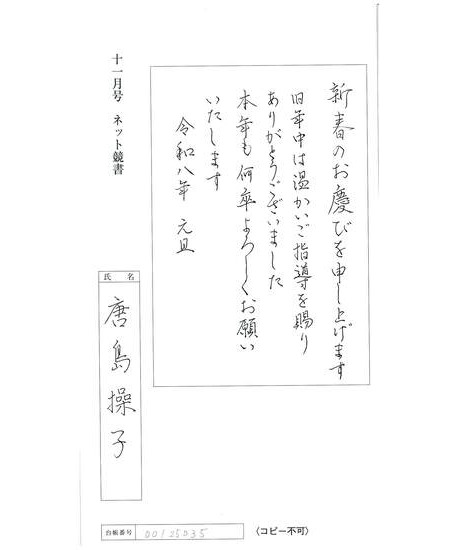 新春のお慶びを申し上げます
旧年中は温かいご指導を賜り
ありがとうございました
本年も何卒よろしくお願い
いたします
令和八年 元旦
十一月号 ネット競書
氏名
唐島操子
台帳番号
00125035
(コピー不可)